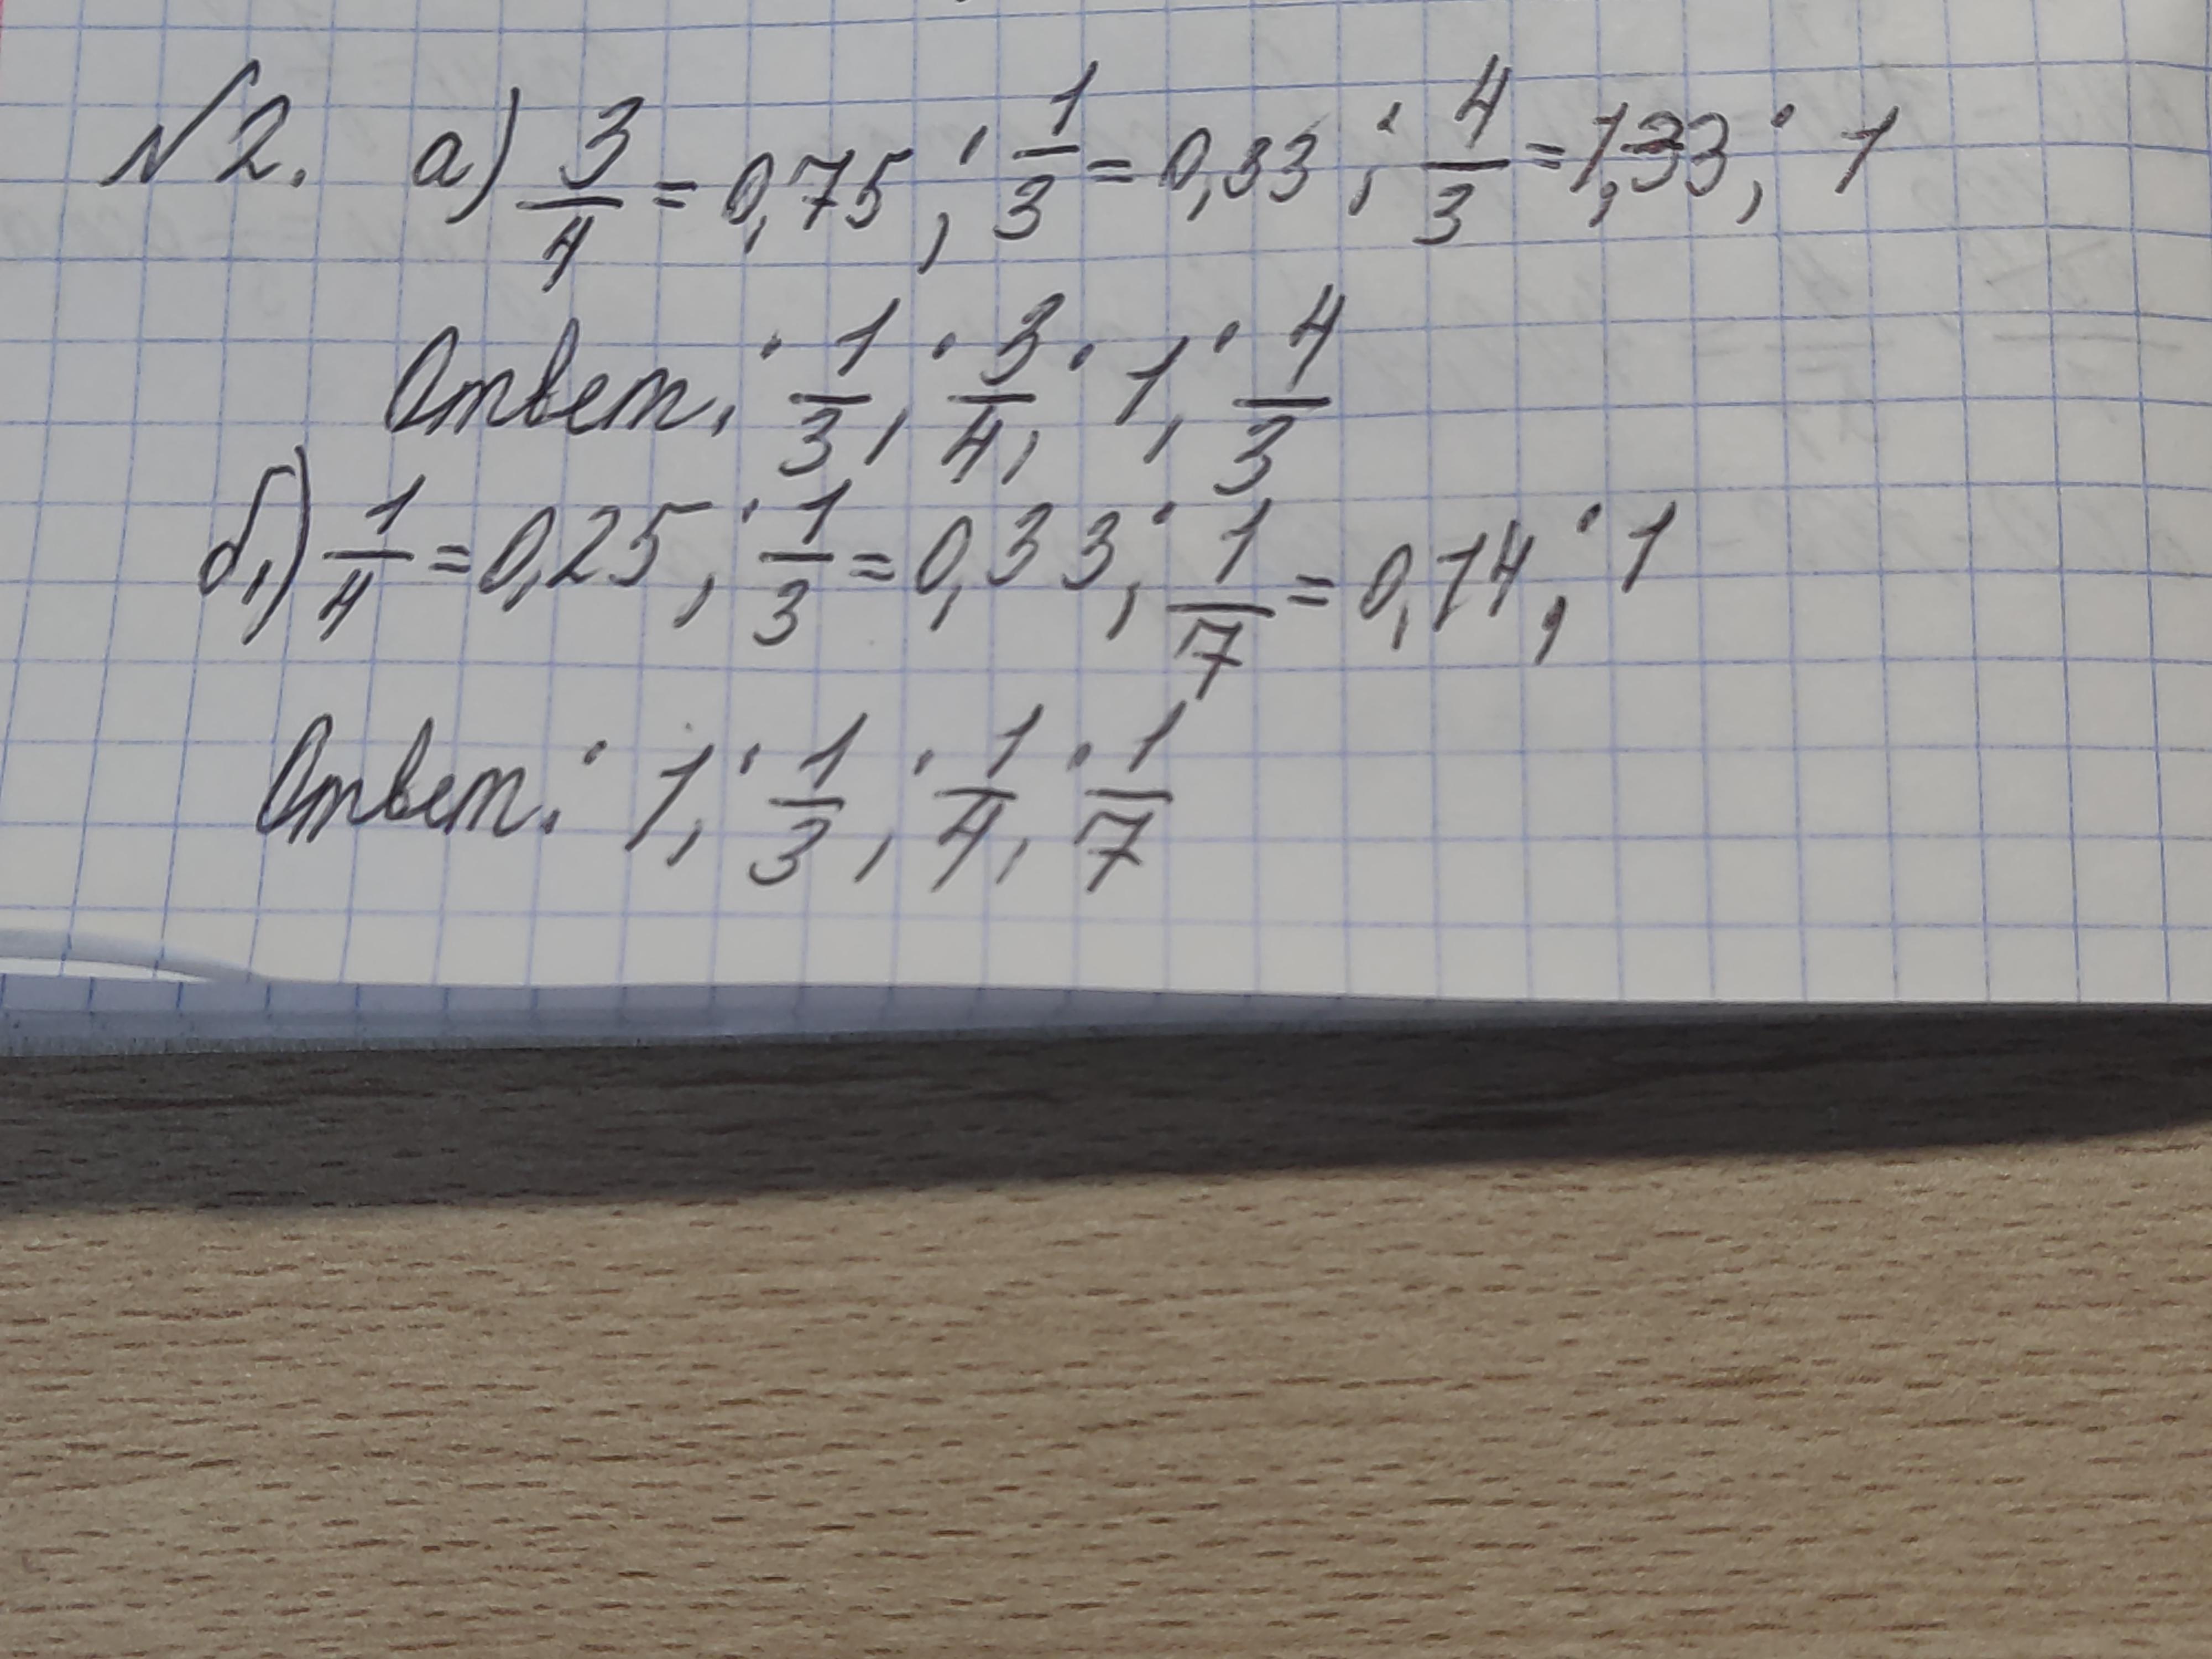 №2. а) 3/4 = 0,75; 1/3 = 0,33; 4/3 = 1,33; 1
Ответ: 1/3; 3/4; 1; 4/3
б) 1/4 = 0,25; 1/3 = 0,33; 1/7 = 0,14; 1
Ответ: 1; 1/3; 1/4; 1/7